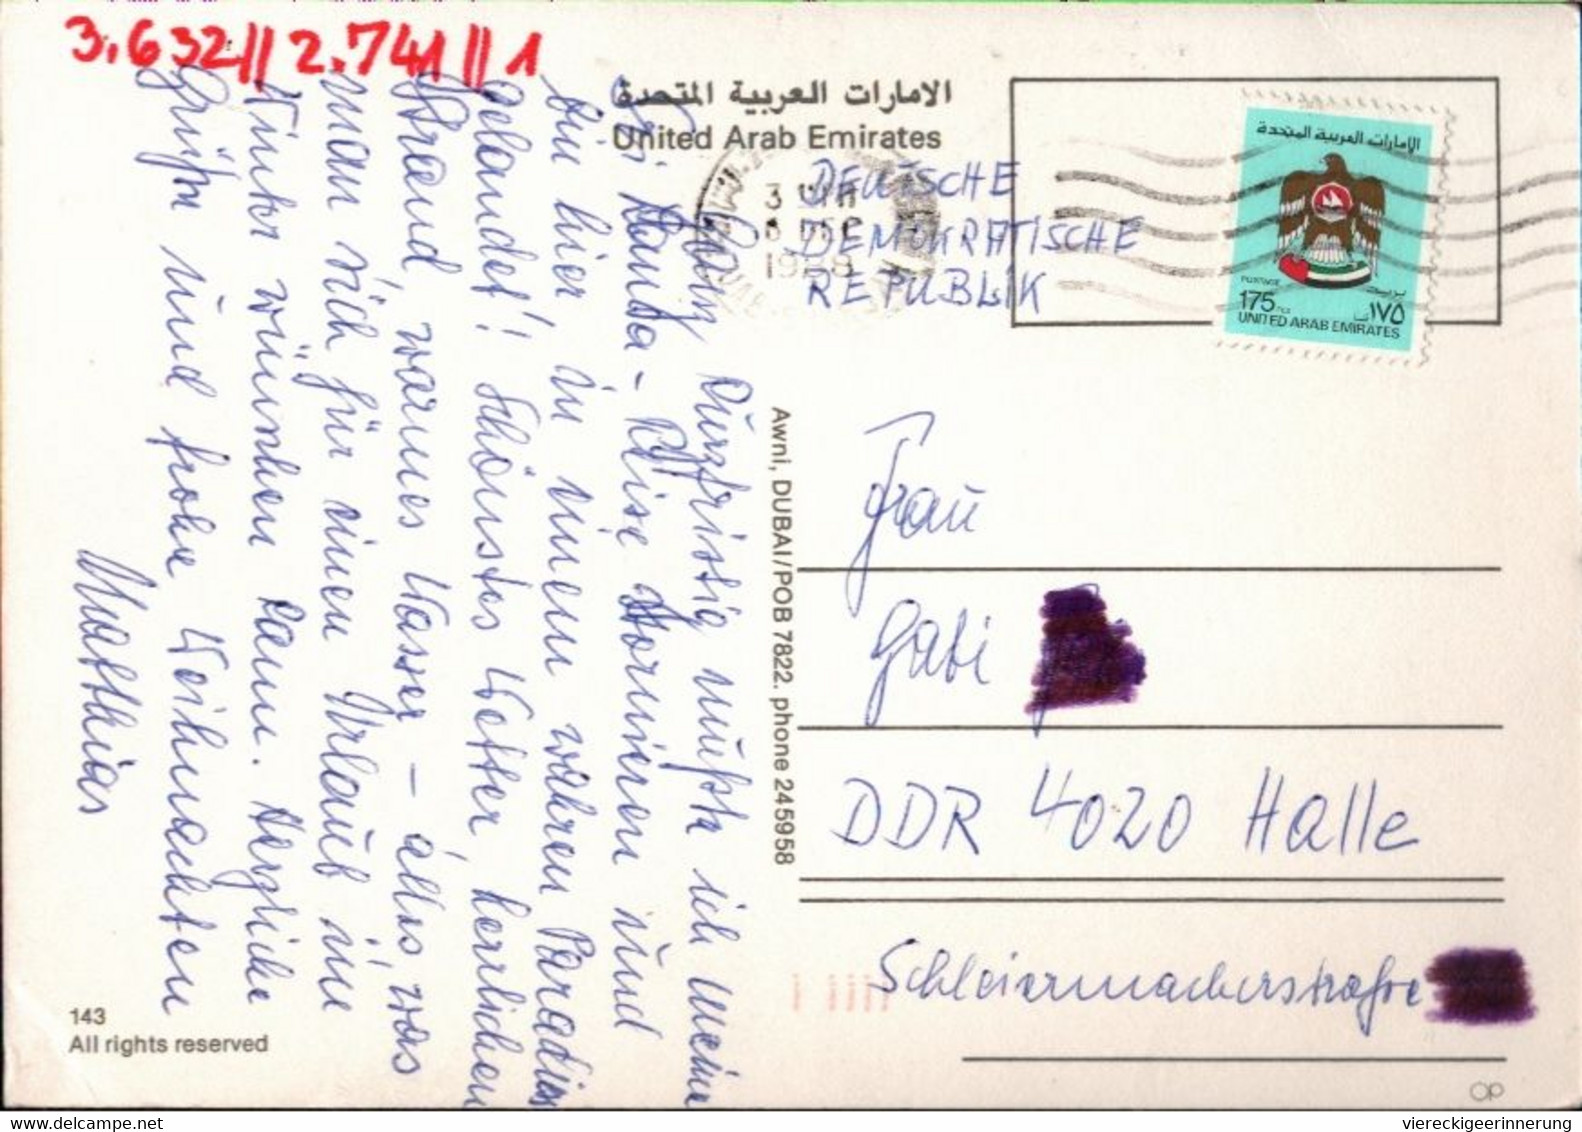 3.632||2.741||1
الامارات العربية المتحدة
United Arab Emirates
DEUTSCHE
DEMOKRATISCHE
REPUBLIK
8 DEC
1988
الإمارات العربية المتحدة
POSTAGE
بريد
175 FILS
١٧٥ فلسا
UNITED ARAB EMIRATES
Ganz kurzfristig mußte ich meine
Sri Lanka-Reise stornieren und
bin hier in einem wahren Paradies
gelandet! Schönstes Wetter, herrlichen
Strand, warmes Wasser - alles, was
man sich für einen Urlaub im
Winter wünschen kann. Herzliche
Grüße und frohe Weihnachten
Matthias
Awni, DUBAI/POB 7822. phone 245958
Frau
Gabi
DDR 4020 Halle
Schleiermacherstraße
143
All rights reserved
viereckigeerinnerung